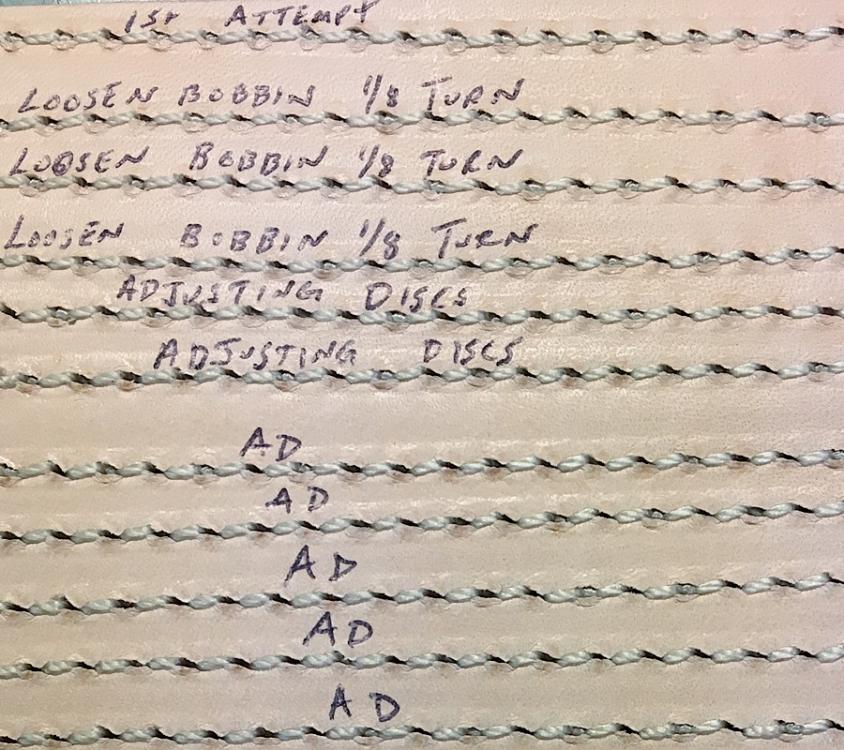 1ST ATTEMPT
LOOSEN BOBBIN 1/8 TURN
LOOSEN BOBBIN 1/8 TURN
LOOSEN BOBBIN 1/8 TURN
ADJUSTING DISCS
ADJUSTING DISCS
AD
AD
AD
AD
AD